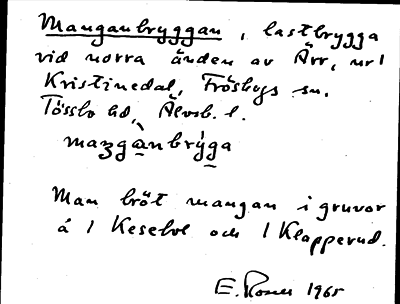 Manganbryggan, lastbrygga
vid norra änden av Ärr, nr 1
Kristinedal, Fröskogs sn.
Tössbo hd, Älvsb. l.
maŋgànbrýga
Man bröt mangan i gruvor
å 1 Keselbol och 1 Klapperud.
E. Rosell 1965